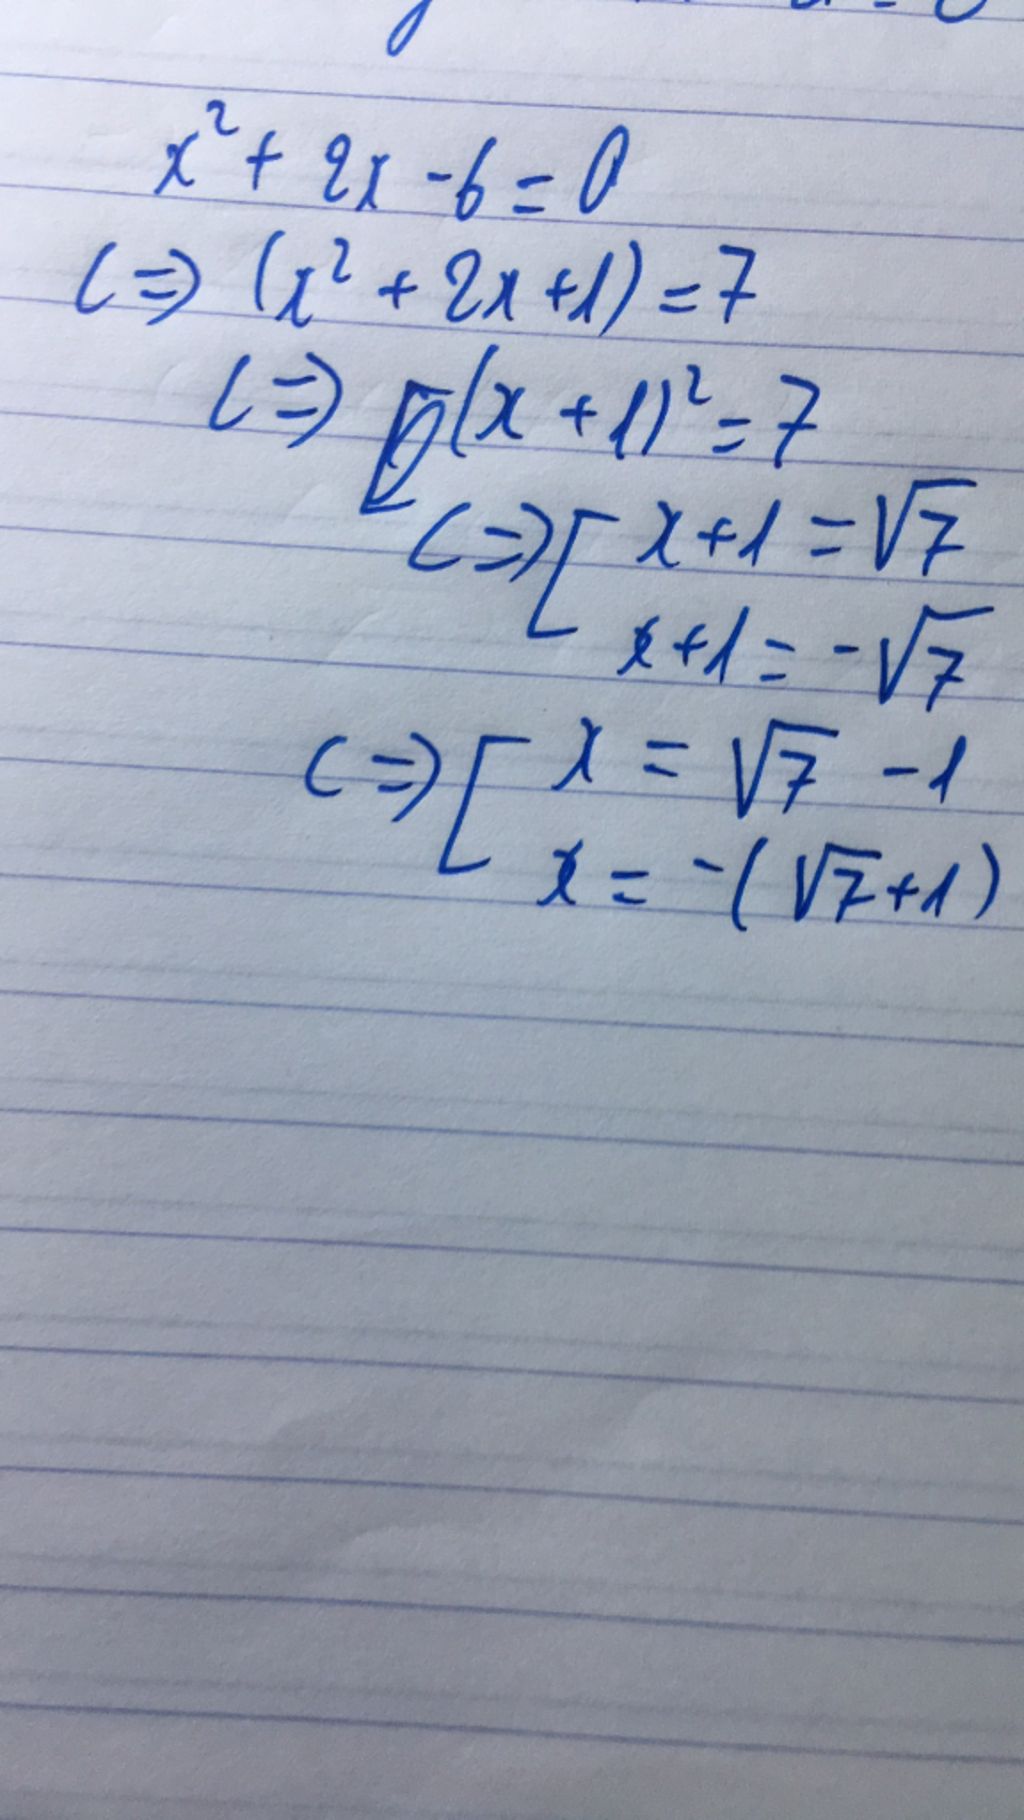 x² + 2x - 6 = 0
<=> (x² + 2x + 1) = 7
<=> (x + 1)² = 7
<=> [ x + 1 = √7
x + 1 = -√7
<=> [ x = √7 - 1
x = -(√7 + 1)